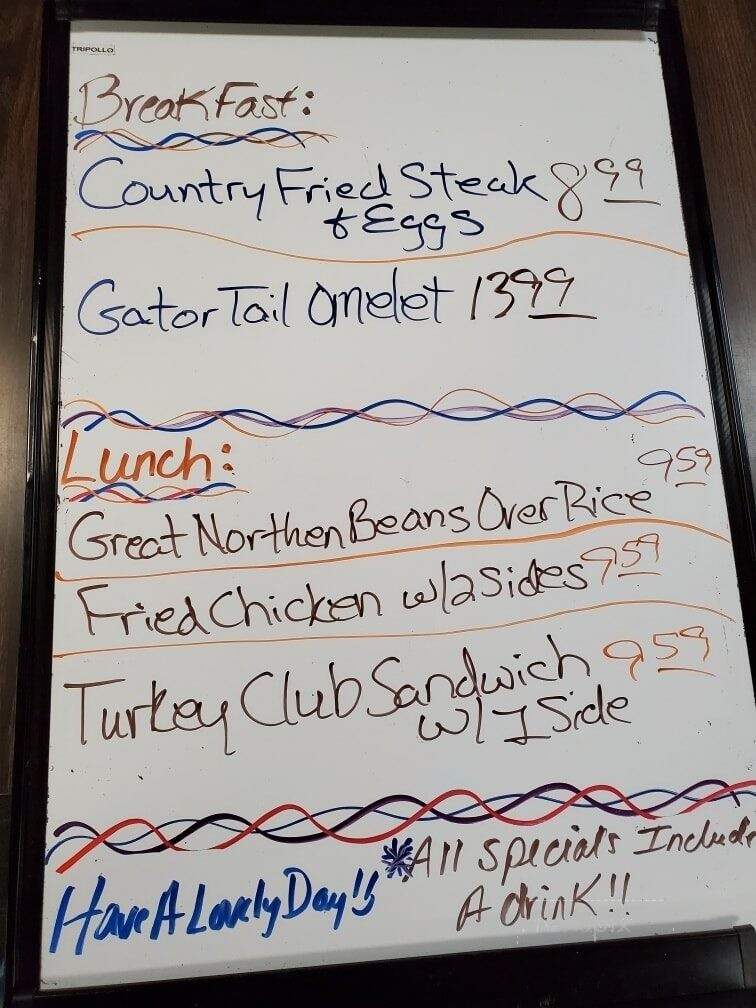 TRIPOLLO
BreakFast:
Country Fried Steak 8 99
& Eggs
Gator Tail Omelet 13 99
Lunch:
9 59
Great Northen Beans Over Rice
Fried Chicken w/2 sides 9 59
Turkey Club Sandwich 9 59
w/1 Side
*All specials Include
Have A Lovely Day!!
A drink!!